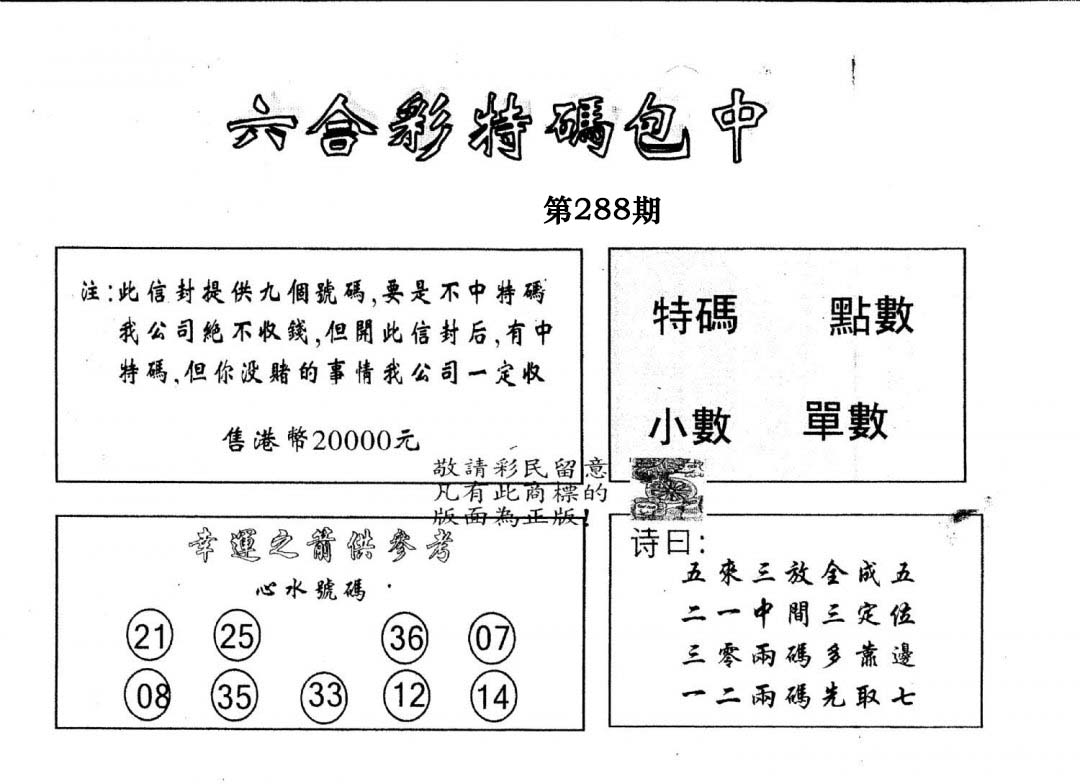 六合彩特碼包中
第288期
注:此信封提供九個號碼,要是不中特碼
我公司絕不收錢,但開此信封后,有中
特碼,但你没賭的事情我公司一定收
售港幣20000元
特碼 點數
小數 單數
敬請彩民留意
凡有此商標的
版面為正版!
幸運之箭供參考
心水號碼
21 25 36 07
08 35 33 12 14
诗曰:
五來三放全成五
二一中間三定位
三零兩碼多靠邊
一二兩碼先取七